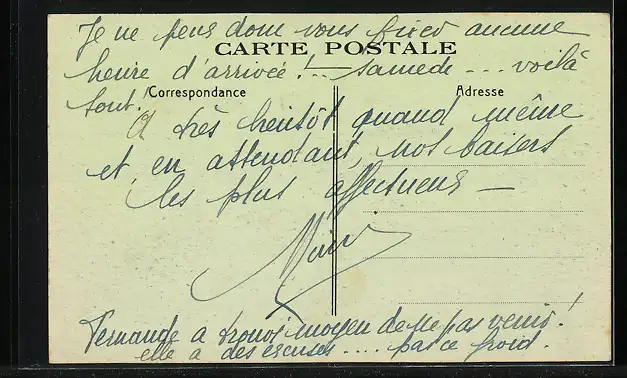 Je ne peux donc vous fixer aucune
CARTE POSTALE
heure d'arrivée! — samedi ... voilà
tout!
Correspondance
Adresse
A très bientôt quand même
et, en attendant, nos baisers
les plus affectueux —
Fernande a trouvé moyen de ne pas venir!
elle a des excuses .... par ce froid.